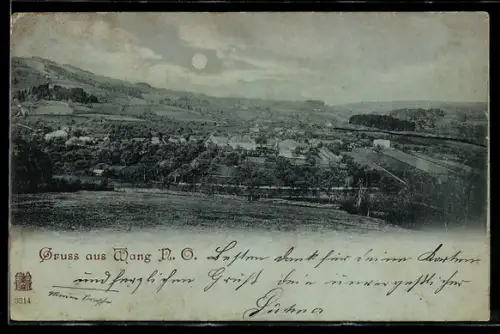 Gruss aus Wang N. O. Besten Dank für deine Karten
und herzlichen Gruß deine unvergeßlicher
3314